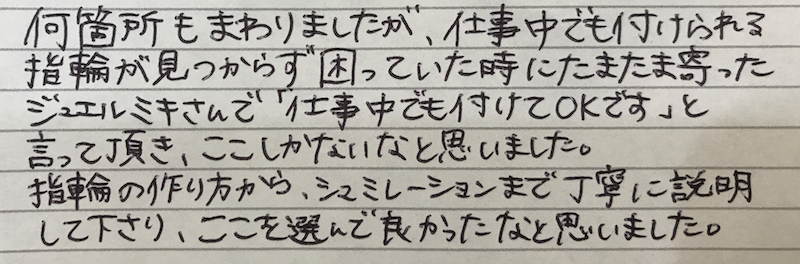 何箇所もまわりましたが、仕事中でも付けられる
指輪が見つからず困っていた時にたまたま寄った
ジュエルミキさんで「仕事中でも付けてOKです」と
言って頂き、ここしかないなと思いました。
指輪の作り方から、シュミレーションまで丁寧に説明
して下さり、ここを選んで良かったなと思いました。